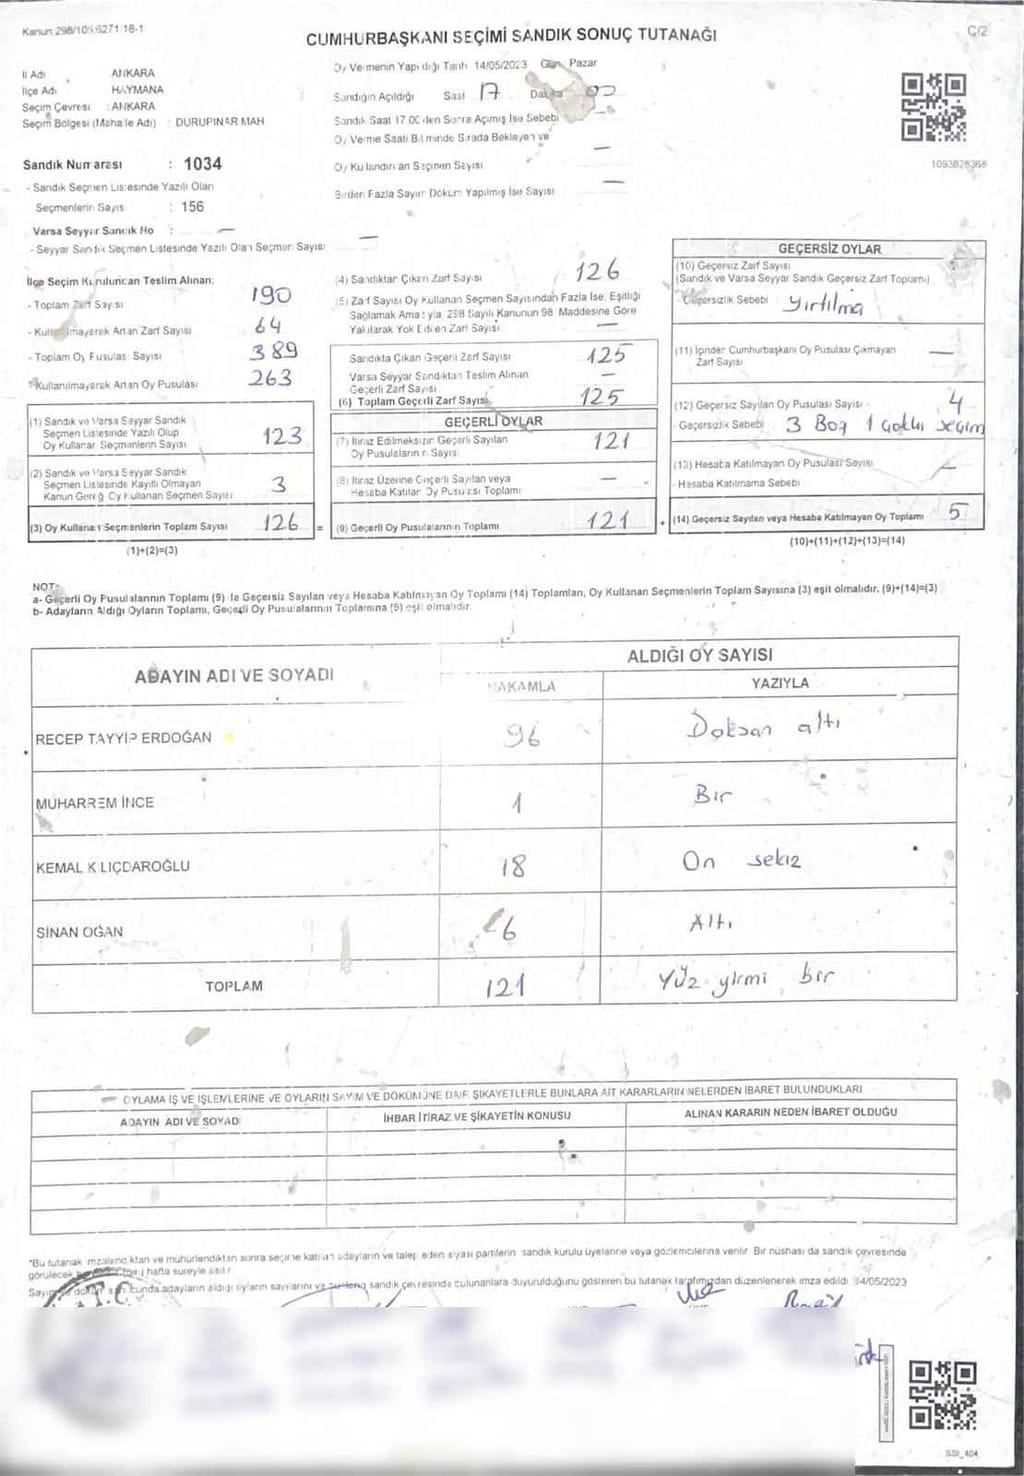 Kanun 298/105, 6271/18-1
CUMHURBAŞKANI SEÇİMİ SANDIK SONUÇ TUTANAĞI
C/2
İl Adı ANKARA
İlçe Adı HAYMANA
Seçim Çevresi : ANKARA
Seçim Bölgesi (Mahalle Adı) : DURUPINAR MAH
Oy Vermenin Yapıldığı Tarih 14/05/2023 Gün Pazar
Sandığın Açıldığı Saat 17 Dakika 00
Sandık Saat 17.00'den Sonra Açılmış İse Sebebi —
Oy Verme Saati Bitiminde Sırada Bekleyen ve
Oy Kullandırılan Seçmen Sayısı —
Birden Fazla Sayım Döküm Yapılmış İse Sayısı —
1093828368
Sandık Numarası : 1034
- Sandık Seçmen Listesinde Yazılı Olan
Seçmenlerin Sayısı : 156
Varsa Seyyar Sandık No : —
- Seyyar Sandık Seçmen Listesinde Yazılı Olan Seçmen Sayısı —
İlçe Seçim Kurulundan Teslim Alınan:
- Toplam Zarf Sayısı 190
- Kullanılmayarak Artan Zarf Sayısı 64
- Toplam Oy Pusulası Sayısı 389
- Kullanılmayarak Artan Oy Pusulası 263
(1) Sandık ve Varsa Seyyar Sandık
Seçmen Listesinde Yazılı Olup
Oy Kullanan Seçmenlerin Sayısı 123
(2) Sandık ve Varsa Seyyar Sandık
Seçmen Listesinde Kayıtlı Olmayan
Kanun Gereği Oy Kullanan Seçmen Sayısı 3
(3) Oy Kullanan Seçmenlerin Toplam Sayısı 126 =
(1)+(2)=(3)
(4) Sandıktan Çıkan Zarf Sayısı 126
(5) Zarf Sayısı Oy Kullanan Seçmen Sayısından Fazla İse, Eşitliği
Sağlamak Amacıyla 298 Sayılı Kanunun 98. Maddesine Göre
Yakılarak Yok Edilen Zarf Sayısı —
Sandıkta Çıkan Geçerli Zarf Sayısı 125
Varsa Seyyar Sandıktan Teslim Alınan
Geçerli Zarf Sayısı —
(6) Toplam Geçerli Zarf Sayısı 125
GEÇERLİ OYLAR
(7) İtiraz Edilmeksizin Geçerli Sayılan
Oy Pusulalarının Sayısı 121
(8) İtiraz Üzerine Geçerli Sayılan veya
Hesaba Katılan Oy Pusulası Toplamı —
(9) Geçerli Oy Pusulalarının Toplamı 121 +
GEÇERSİZ OYLAR
(10) Geçersiz Zarf Sayısı
(Sandık ve Varsa Seyyar Sandık Geçersiz Zarf Toplamı)
- Geçersizlik Sebebi Yırtılma
(11) İçinden Cumhurbaşkanı Oy Pusulası Çıkmayan
Zarf Sayısı —
(12) Geçersiz Sayılan Oy Pusulası Sayısı 4
- Geçersizlik Sebebi 3 Boş 1 çoklu seçim
(13) Hesaba Katılmayan Oy Pusulası Sayısı —
- Hesaba Katılmama Sebebi
(14) Geçersiz Sayılan veya Hesaba Katılmayan Oy Toplamı 5
(10)+(11)+(12)+(13)=(14)
NOT:
a- Geçerli Oy Pusulalarının Toplamı (9) ile Geçersiz Sayılan veya Hesaba Katılmayan Oy Toplamı (14) Toplamları, Oy Kullanan Seçmenlerin Toplam Sayısına (3) eşit olmalıdır. (9)+(14)=(3)
b- Adayların Aldığı Oyların Toplamı, Geçerli Oy Pusulalarının Toplamına (9) eşit olmalıdır.
ADAYIN ADI VE SOYADI
ALDIĞI OY SAYISI
RAKAMLA YAZIYLA
RECEP TAYYİP ERDOĞAN 96 Doksan altı
MUHARREM İNCE 1 Bir
KEMAL KILIÇDAROĞLU 18 On sekiz
SİNAN OĞAN 6 Altı
TOPLAM 121 Yüz yirmi bir
OYLAMA İŞ VE İŞLEMLERİNE VE OYLARIN SAYIM VE DÖKÜMÜNE DAİR ŞİKAYETLERLE BUNLARA AİT KARARLARIN NELERDEN İBARET BULUNDUKLARI
ADAYIN ADI VE SOYADI İHBAR İTİRAZ VE ŞİKAYETİN KONUSU ALINAN KARARIN NEDEN İBARET OLDUĞU
*Bu tutanak imzalandıktan ve mühürlendikten sonra seçime katılan adayların ve talep eden siyasi partilerin sandık kurulu üyelerine veya gözlemcilerine verilir. Bir nüshası da sandık çevresinde
görülecek bir hafta süreyle asılır.
adayların aldığı oyların sayılarını ve sandık çevresinde bulunanlara duyurulduğunu gösteren bu tutanak tarafımızdan düzenlenerek imza edildi. 14/05/2023
T.C.
SSI_404